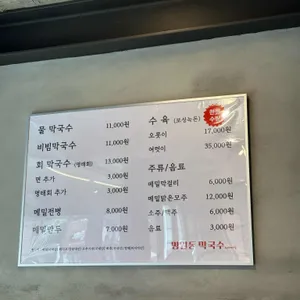 물 막국수 11,000원
비빔막국수 11,000원
회 막국수 (명태회) 13,000원
면 추가 3,000원
명태회 추가 3,000원
메밀전병 8,000원
메밀만두 7,000원
수 육
오롯이 17,000원
여럿이 35,000원
주류/음료
메밀막걸리 6,000원
메밀맑은모주 12,000원
소주/맥주 6,000원
음료 3,000원
막국수